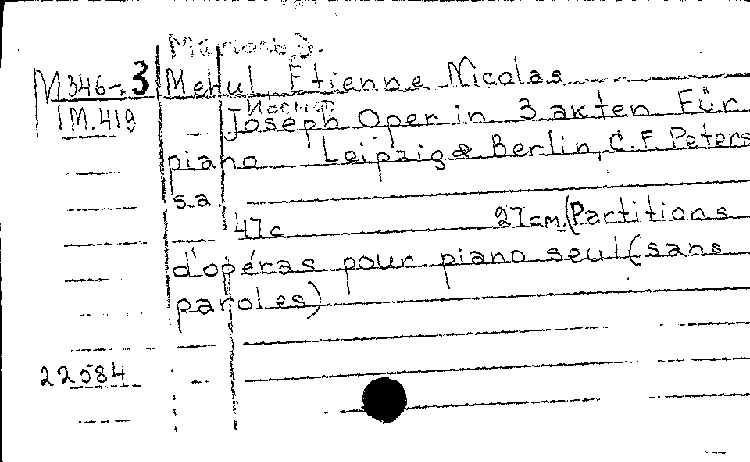 M346-3 Mehul, Etienne Nicolas
1M.419
Joseph Oper in 3 akten Für
piano Leipzig & Berlin, C.F Peters
s.a
47c 27cm. (Partitions
d'opéras pour piano seul (sans
paroles)
22584